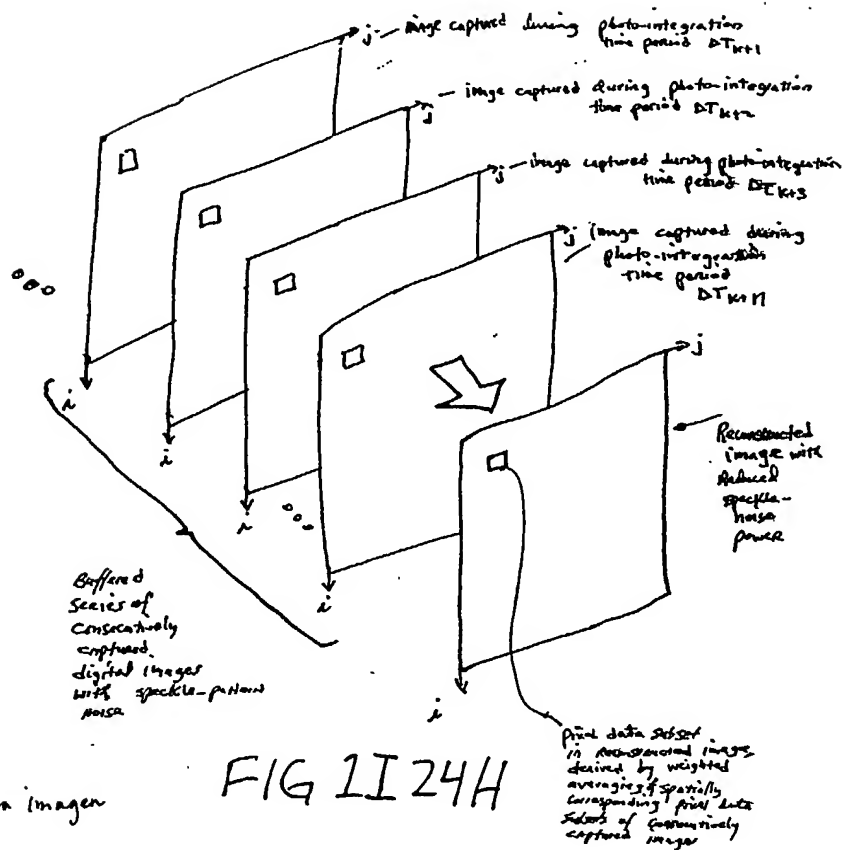 j
image captured during photo-integration
time period ΔT K+1
j
image captured during photo-integration
time period ΔT K+2
j
image captured during photo-integration
time period ΔT K+3
j
image captured during
photo-integration
time period
ΔT K+N
j
Reconstructed
image with
Reduced
speckle-
noise
power
i
i
i
i
i
Buffered
Series of
Consecutively
captured
digital images
with speckle-pattern
noise
pixel data subset
in reconstructed images
derived by weighted
averaging of spatially
corresponding pixel data
subsets of consecutively
captured images
FIG 1I24H
imagen